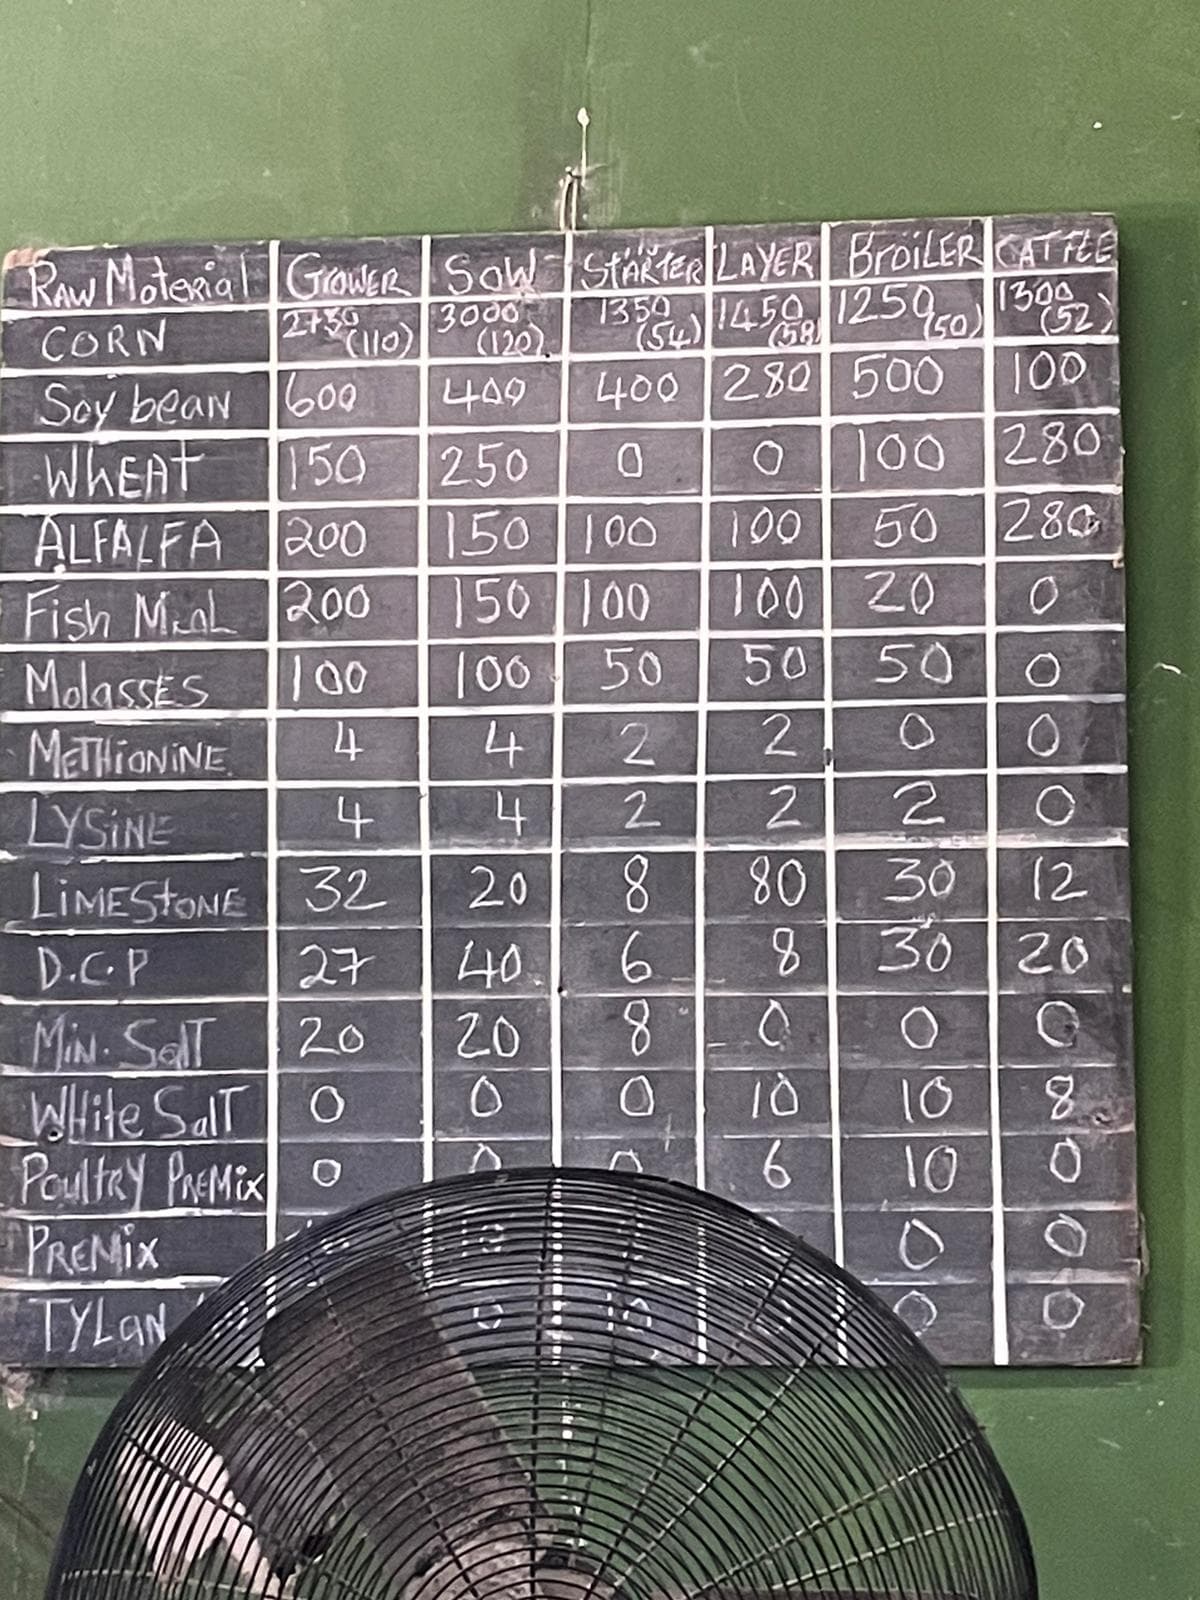 Raw Material GROWER SOW STARTER LAYER BROILER CATTLE
CORN 2750 (110) 3000 (120) 1350 (54) 1450 (58) 1250 (50) 1300 (52)
Soy bean 600 400 400 280 500 100
WHEAT 150 250 0 0 100 280
ALFALFA 200 150 100 100 50 280
Fish Meal 200 150 100 100 20 0
MolaSSES 100 100 50 50 50 0
METHiONiNE 4 4 2 2 0 0
LYSiNE 4 4 2 2 2 0
LiMEStONE 32 20 8 80 30 12
D.C.P 27 40 6 8 30 20
Min. Salt 20 20 8 0 0 0
WHite Salt 0 0 0 10 10 8
Poultry PREMix 0 0 0 6 10 0
PREMix 0 0
TYLan 0 10 0 0